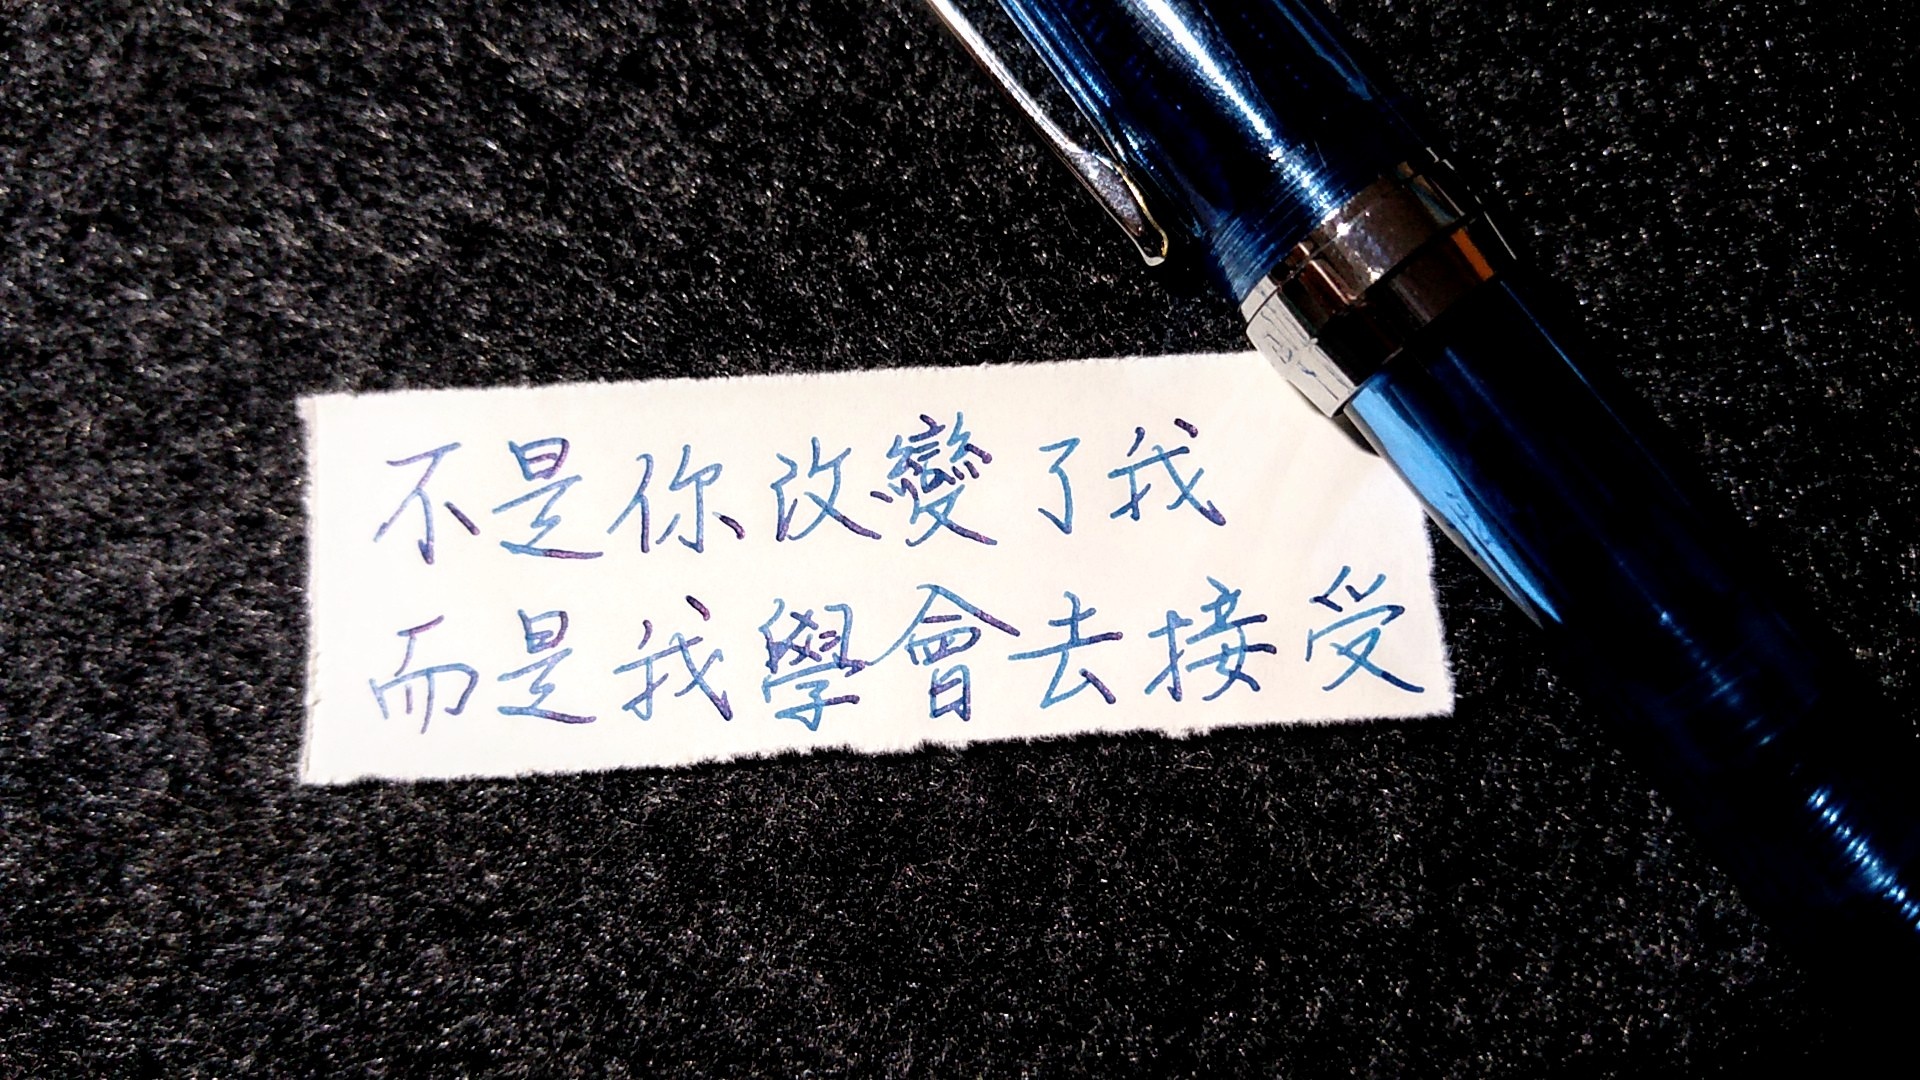 不是你改變了我
而是我學會去接受